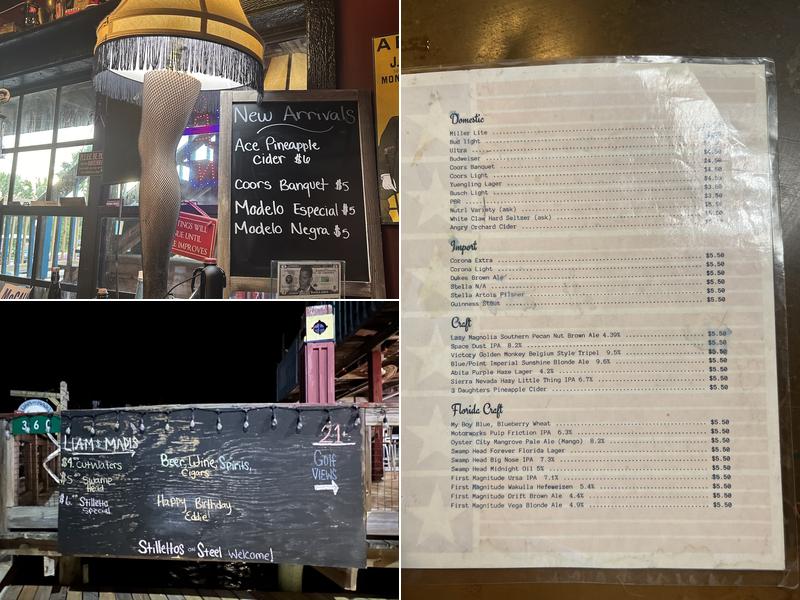 New Arrivals
Ace Pineapple
cider $6
Coors Banquet $5
Modelo Especial $5
Modelo Negra $5
TINGS WILL
NUE UNTIL
E IMPROVES
LIAM & MADIS
$4. Cutwaters
$5 Swamp
Head
$6. Stiletto
Special
Beer, Wine, Spirits,
Cigars
Happy Birthday
Eddie
Stillettos on Steel Welcome!
21+
GOLF
VIEWS
Domestic
Miller Lite
Bud light
Ultra
Budweiser
Coors Banquet $4.50
Coors Light
Yuengling Lager
Busch Light $3.50
PBR
Nutrl Variety (ask)
White Claw Hard Seltzer (ask)
Angry Orchard Cider
Import
Corona Extra $5.50
Corona Light $5.50
Dukes Brown Ale $5.50
Stella N/A $5.50
Stella Artois Pilsner $5.50
Guinness Stout $5.50
Craft
Lazy Magnolia Southern Pecan Nut Brown Ale 4.39% $5.50
Space Dust IPA 8.2% $5.50
Victory Golden Monkey Belgium Style Tripel 9.5% $5.50
Blue/Point Imperial Sunshine Blonde Ale 9.6% $5.50
Abita Purple Haze Lager 4.2% $5.50
Sierra Nevada Hazy Little Thing IPA 6.7% $5.50
3 Daughters Pineapple Cider $5.50
Florida Craft
My Boy Blue, Blueberry Wheat $5.50
Motorworks Pulp Friction IPA 6.3% $5.50
Oyster City Mangrove Pale Ale (Mango) 8.2% $5.50
Swamp Head Forever Florida Lager $5.50
Swamp Head Big Nose IPA 7.3% $5.50
Swamp Head Midnight Oil 5% $5.50
First Magnitude Ursa IPA 7.1% $5.50
First Magnitude Wakulla Hefeweizen 5.4% $5.50
First Magnitude Drift Brown Ale 4.4% $5.50
First Magnitude Vega Blonde Ale 4.9% $5.50